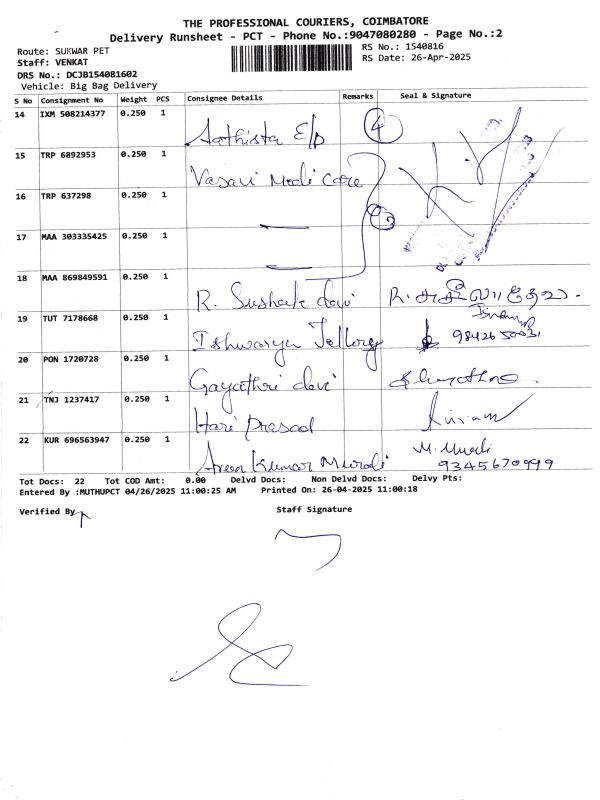 THE PROFESSIONAL COURIERS, COIMBATORE
Delivery Runsheet - PCT - Phone No.:9047080280 - Page No.:2
Route: SUKWAR PET
RS No.: 1540816
Staff: VENKAT
RS Date: 26-Apr-2025
DRS No.: DCJB154081602
Vehicle: Big Bag Delivery
S No Consignment No Weight PCS Consignee Details Remarks Seal & Signature
14 IXM 508214377 0.250 1 4
15 TRP 6892953 0.250 1 Vasavi Medi care
16 TRP 637298 0.250 1
17 MAA 303335425 0.250 1
18 MAA 869849591 0.250 1 R. Devi R.
19 TUT 7178668 0.250 1 Ishwarya 9842650031
20 PON 1720728 0.250 1 Gayathri devi
21 TNJ 1237417 0.250 1 Hari Prasad
22 KUR 696563947 0.250 1 Kumar Murali M. Murali 9345670999
Tot Docs: 22 Tot COD Amt: 0.00 Delvd Docs: Non Delvd Docs: Delvy Pts:
Entered By :MUTHUPCT 04/26/2025 11:00:25 AM Printed On: 26-04-2025 11:00:18
Verified By
Staff Signature